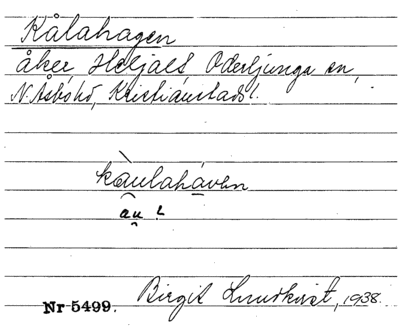 Kålahagen
åker, Heljalt, Oderljunga sn,
N. Åsbo hd, Kristianstads l.
kàulaháven
au !
Nr 5499. Birgit Lundkvist, 1938.